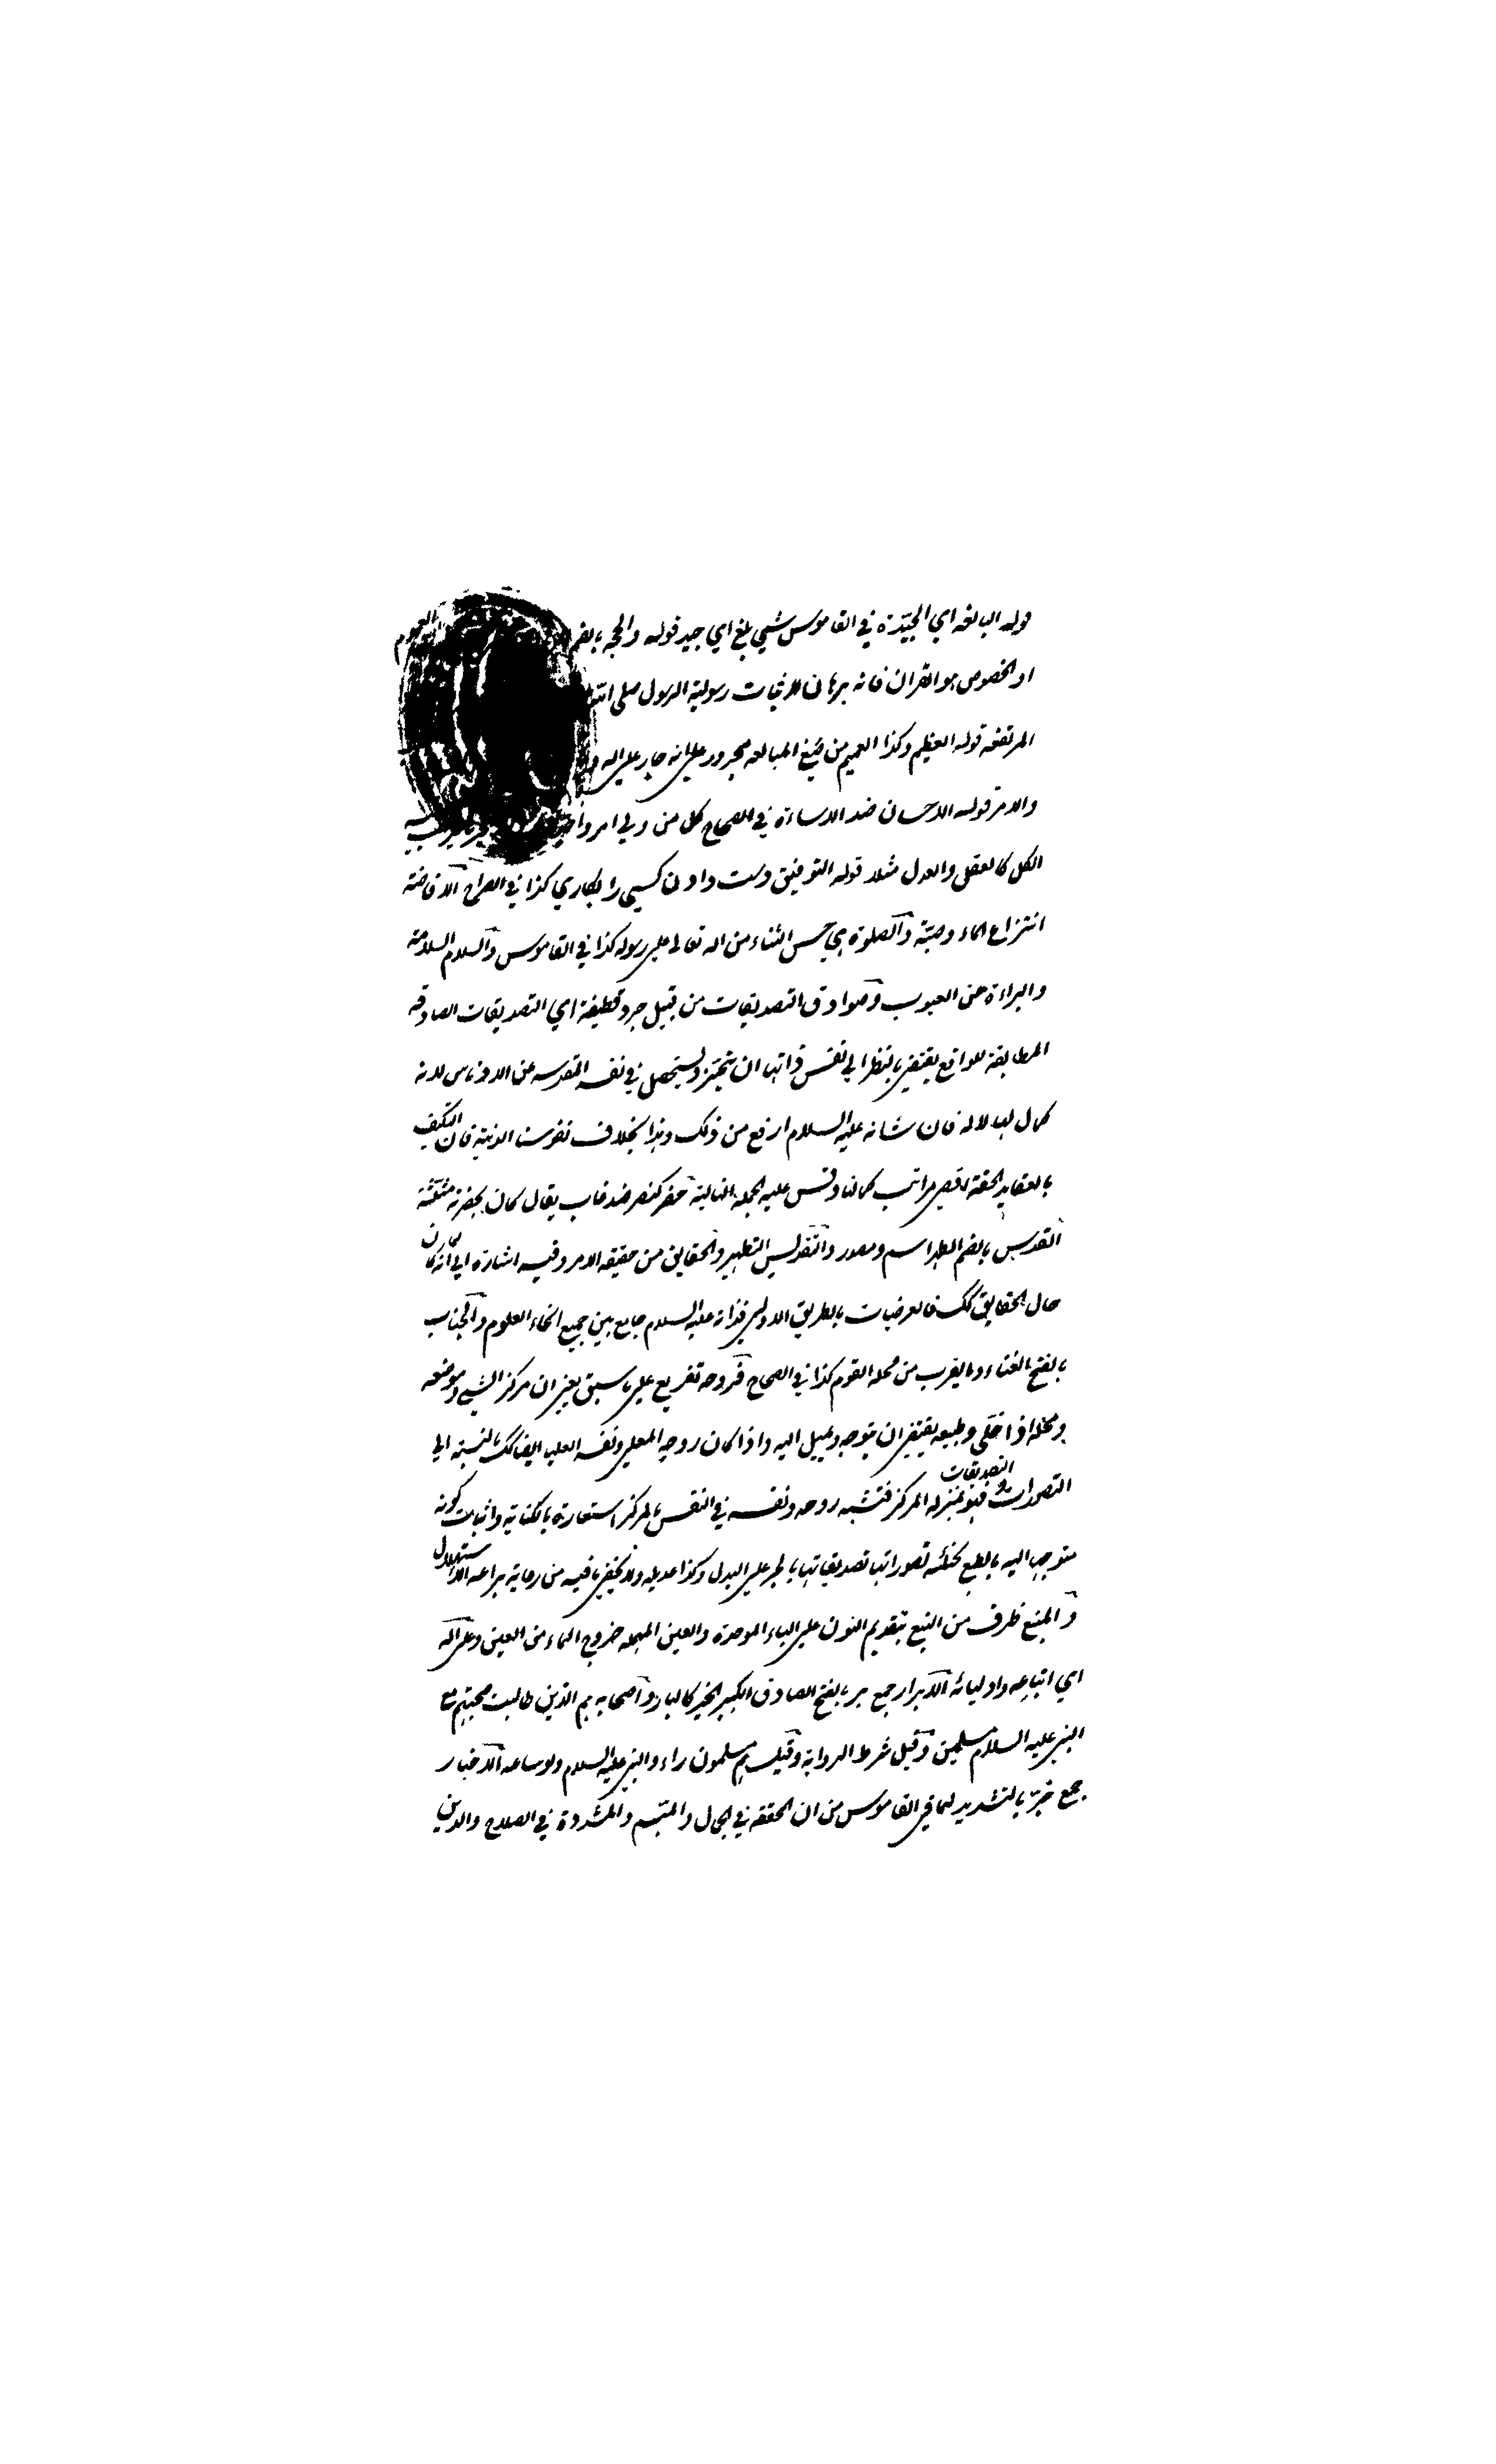 قوله البالغه اي الجيّدة في القاموس شيي بلغ اي جيد قوله والحجه بالضم العموم
او الخصوص هو القران فانه برهان لاثبات رسولية الرسول صلى الله
المرتفعه قوله العظيم وكذا العميم من صيغ المبالغه مجرور على انه جار على اله
والامر قوله الاحسان ضد الاساءة في الصحاح كل من ولي امر واحد
الكل كالعقل والعدل مثلا قوله التوفيق دست دادن كسي را بكاري كذا في الصراح الافاضة
انتزاع الماء وصبّه والصلوة هي حسن الثناء من اله تعالى على رسوله كذا في القاموس والسلام السلامة
والبراءة عن العيوب وصوادق التصديقات من قبيل جرد قطيفة اي التصديقات الصادقه
المطابقة للواقع يقتضي بالنظر الي نفس ذاتها ان يتحيّز ويستحصل في نفسه المقدسه عن الادناس لانه
كمال لها لاله فان شانه عليه السلام ارفع من ذلك وهذا بخلاف نفوسنا الدنية فان التكيف
بالعقايد الحقة اقصى مراتب كمالنا وقس عليه الجملة التالية حضر كنصر ضد غاب يقال كان بحضرته مثلثة
القدس بالضم الطهر اسم ومصدر والتقديس التطهير والحقايق من حقيقه الامر وفيه اشارة الي انه لما كان
حال الحقايق كك فالعرضيات بالطريق الاولى فذاته عليه السلام جامع بين جميع انحاء العلوم والجناب
بالفتح الفناء وما يقرب من محله القوم كذا في الصحاح فروحه تفريع على ما سبق يعني ان مركز الشيي وموضعه
ومحله اذا خلّي وطبعه يقتضي ان يتوجه ويميل اليه واذا كان روحه المعلى ونفسه العليا ايضا كك بالنسبته الي
التصورات والتصديقات فهو بمنزله المركز فتشبه روحه ونفسه في النفس بالمركز استعارة بالكناية واثبات كونه
متوجها اليه بالطبع تخئله تصوراتها تصديقاتها بالجر على البدل وكذا عديله ولا يخفى ما فيه من رعاية براعه الاستهلال
والمنبع ظرف من النبع بتقديم النون على الباء الموحدة والعين المهمله خروج الماء من العين وعلى اله
اي اتباعه واوليائه الابرار جمع بر بالفتح الصادق الكبير الخير كالبار واصحابه هم الذين طالت صحبتهم مع
النبي عليه السلام مسلمين وقيل شرط الرواية وقيل هم مسلمون راءو النبي عليه السلام ولو ساعه الاخيار
جمع خيّر بالتشديد لما في القاموس من ان المخففه في الجمال والميسم والمشددة في الصلاح والدين